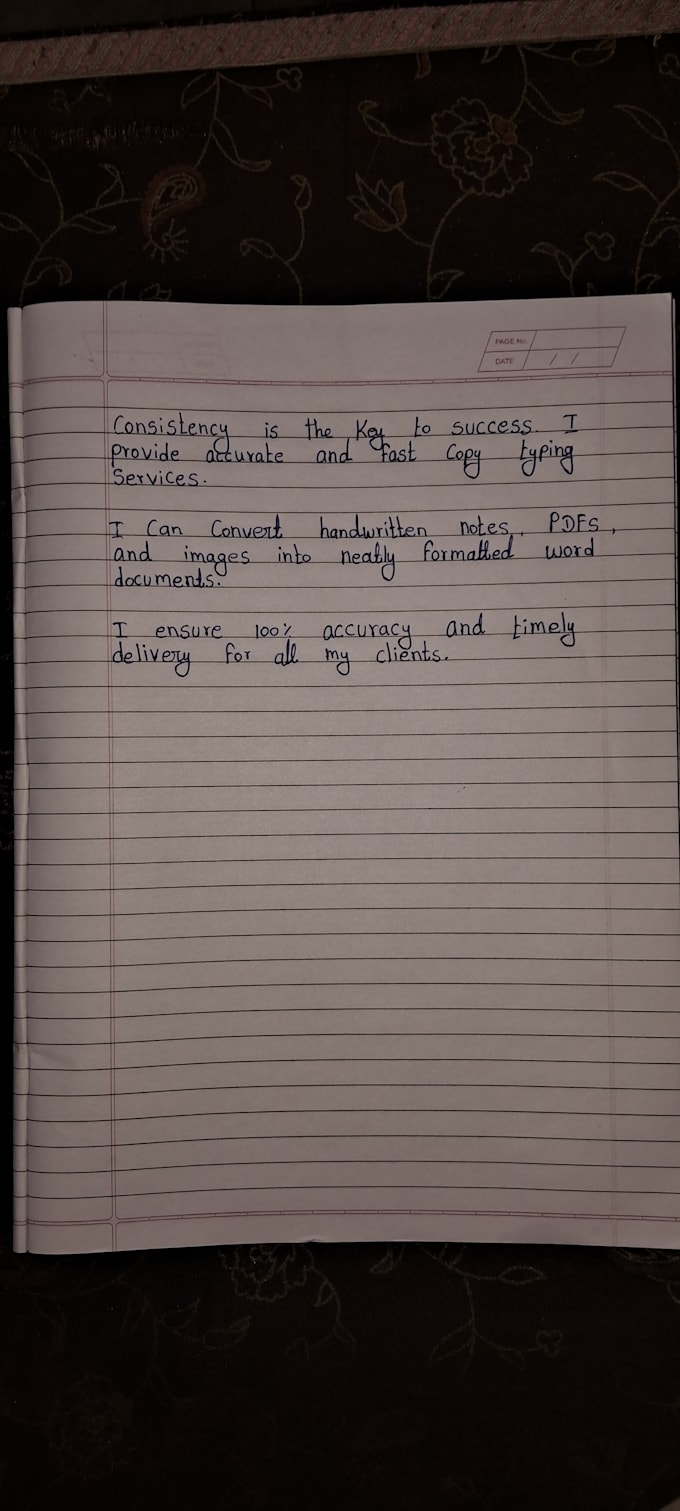 PAGE No.
DATE / /
Consistency is the Key to success. I
provide accurate and fast Copy typing
Services.
I Can Convert handwritten notes, PDFs,
and images into neatly formatted word
documents.
I ensure 100% accuracy and timely
delivery for all my clients.